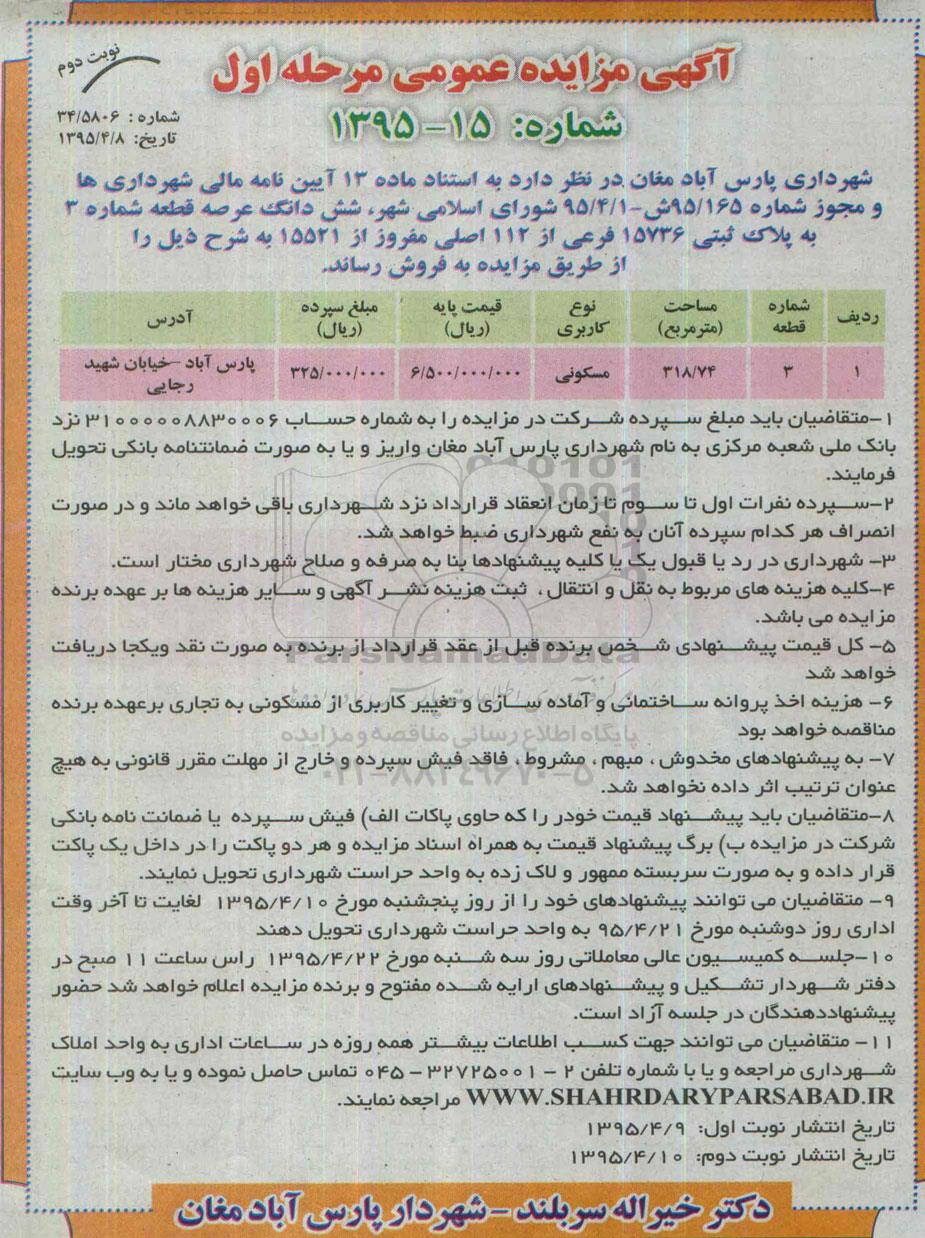 نوبت دوم
آگهی مزایده عمومی مرحله اول
شماره: ۱۵-۱۳۹۵
شماره : ۳۴/۵۸۰۶
تاریخ: ۱۳۹۵/۴/۸
شهرداری پارس آباد مغان در نظر دارد به استناد ماده ۱۳ آیین نامه مالی شهرداری ها
و مجوز شماره ۹۵/۱۶۵ش-۹۵/۴/۱ شورای اسلامی شهر، شش دانگ عرصه قطعه شماره ۳
به پلاک ثبتی ۱۵۷۳۶ فرعی از ۱۱۲ اصلی مفروز از ۱۵۵۲۱ به شرح ذیل را
از طریق مزایده به فروش رساند.
ردیف | شماره قطعه | مساحت (مترمربع) | نوع کاربری | قیمت پایه (ریال) | مبلغ سپرده (ریال) | آدرس
۱ | ۳ | ۳۱۸/۷۴ | مسکونی | ۶/۵۰۰/۰۰۰/۰۰۰ | ۳۲۵/۰۰۰/۰۰۰ | پارس آباد –خیابان شهید رجایی
۱-متقاضیان باید مبلغ سپرده شرکت در مزایده را به شماره حساب ۳۱۰۰۰۰۰۸۸۳۰۰۰۶ نزد
بانک ملی شعبه مرکزی به نام شهرداری پارس آباد مغان واریز و یا به صورت ضمانتنامه بانکی تحویل
فرمایند.
۲-سپرده نفرات اول تا سوم تا زمان انعقاد قرارداد نزد شهرداری باقی خواهد ماند و در صورت
انصراف هر کدام سپرده آنان به نفع شهرداری ضبط خواهد شد.
۳- شهرداری در رد یا قبول یک یا کلیه پیشنهادها بنا به صرفه و صلاح شهرداری مختار است.
۴-کلیه هزینه های مربوط به نقل و انتقال ، ثبت هزینه نشر آگهی و سایر هزینه ها بر عهده برنده
مزایده می باشد.
۵- کل قیمت پیشنهادی شخص برنده قبل از عقد قرارداد از برنده به صورت نقد ویکجا دریافت
خواهد شد
۶- هزینه اخذ پروانه ساختمانی و آماده سازی و تغییر کاربری از مسکونی به تجاری برعهده برنده
مناقصه خواهد بود
۷- به پیشنهادهای مخدوش ، مبهم ، مشروط ، فاقد فیش سپرده و خارج از مهلت مقرر قانونی به هیچ
عنوان ترتیب اثر داده نخواهد شد.
۸-متقاضیان باید پیشنهاد قیمت خودر را که حاوی پاکات الف) فیش سپرده یا ضمانت نامه بانکی
شرکت در مزایده ب) برگ پیشنهاد قیمت به همراه اسناد مزایده و هر دو پاکت را در داخل یک پاکت
قرار داده و به صورت سربسته ممهور و لاک زده به واحد حراست شهرداری تحویل نمایند.
۹- متقاضیان می توانند پیشنهادهای خود را از روز پنجشنبه مورخ ۱۳۹۵/۴/۱۰ لغایت تا آخر وقت
اداری روز دوشنبه مورخ ۹۵/۴/۲۱ به واحد حراست شهرداری تحویل دهند
۱۰-جلسه کمیسیون عالی معاملاتی روز سه شنبه مورخ ۱۳۹۵/۴/۲۲ راس ساعت ۱۱ صبح در
دفتر شهردار تشکیل و پیشنهادهای ارایه شده مفتوح و برنده مزایده اعلام خواهد شد حضور
پیشنهاددهندگان در جلسه آزاد است.
۱۱- متقاضیان می توانند جهت کسب اطلاعات بیشتر همه روزه در ساعات اداری به واحد املاک
شهرداری مراجعه و یا با شماره تلفن ۲ - ۳۲۷۲۵۰۰۱ - ۰۴۵ تماس حاصل نموده و یا به وب سایت
WWW.SHAHRDARYPARSABAD.IR مراجعه نمایند.
تاریخ انتشار نوبت اول: ۱۳۹۵/۴/۹
تاریخ انتشار نوبت دوم: ۱۳۹۵/۴/۱۰
دکتر خیراله سربلند - شهردار پارس آباد مغان
ParsNamadData
پایگاه اطلاع رسانی مناقصه و مزایده
۰۲۱-۸۸۳۴۹۶۷۰-۵